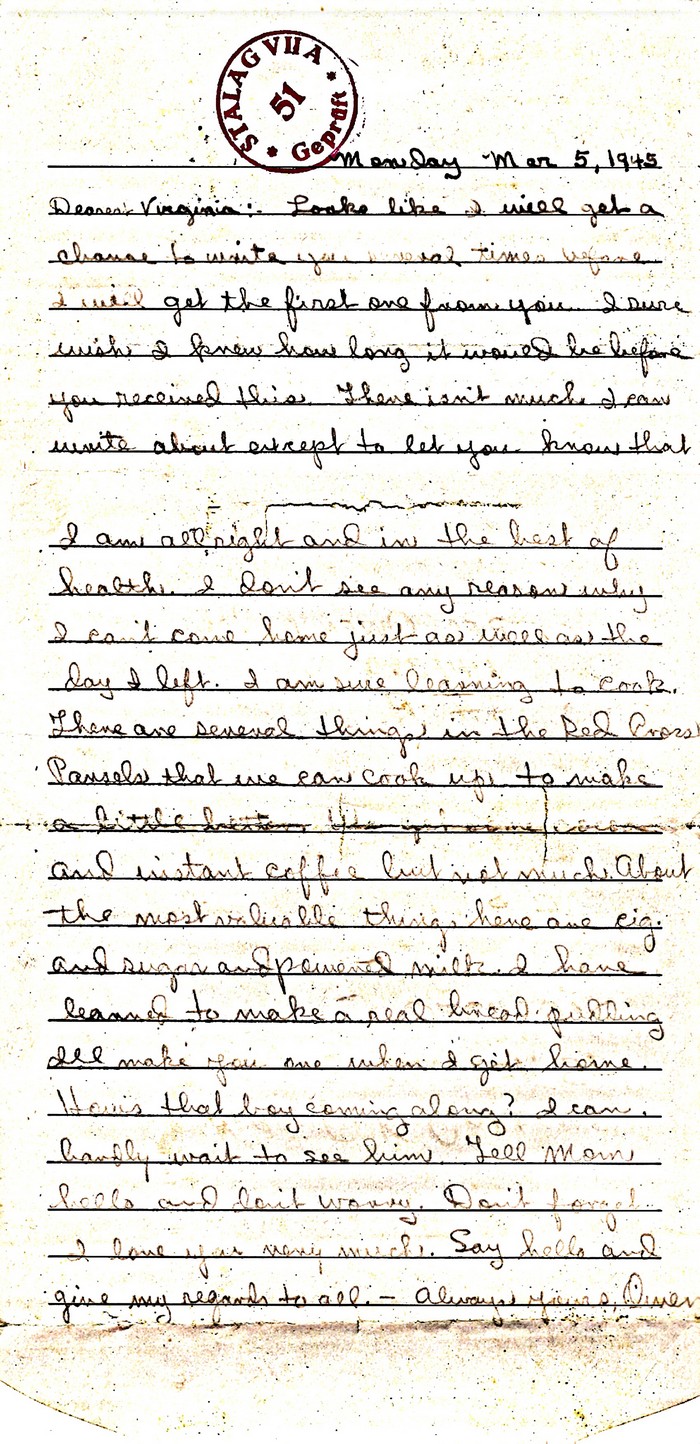 STALAG VII A
51
* Geprüft *
Monday Mar 5, 1945
Dearest Virginia: Looks like I will get a
chance to write you several times before
I will get the first one from you. I sure
wish I knew how long it would be before
you received this. There isn't much I can
write about except to let you know that
I am all right and in the best of
health. I don't see any reason why
I can't come home just as well as the
day I left. I am sure learning to cook.
There are several things in the Red Cross
Parsels that we can cook up to make
a little better. We get some cocoa
and instant coffee but not much. About
the most valuable things here are cig.
and sugar and powered milk. I have
learned to make a real bread pudding
I'll make you one when I get home.
How's that boy coming along? I can
hardly wait to see him. Tell Mom
hello and don't worry. Don't forget
I love you very much. Say hello and
give my regards to all. – Always yours, Owen